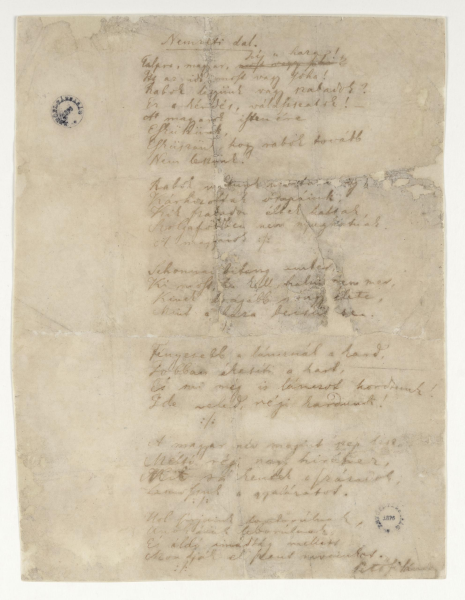 Nemzeti dal.
Talpra magyar, hí a haza!
Itt az idő, most vagy soha!
Rabok legyünk vagy szabadok?
Ez a kérdés, válasszatok! –
A magyarok istenére
Esküszünk,
Esküszünk, hogy rabok tovább
Nem leszünk!
Rabok voltunk mostanáig
Kárhozottak ősapáink,
Kik szabadon éltek haltak,
Szolgaföldben nem nyughatnak.
A magyarok
Sehonnai bitang ember,
Ki most, ha kell, halni nem mer,
Kinek drágább rongy élete,
Mint a haza becsülete.
Fényesebb a láncnál a kard,
Jobban ékesíti a kart,
És mi még is láncot hordunk!
Ide veled, régi kardunk!
A magyar név megint szép lesz,
Méltó régi nagy híréhez,
Mit rá kentek a századok,
Lemossuk a gyalázatot.
Hol sírjaink domborulnak,
Unokáink leborulnak,
És áldó imádság mellett
Mondják el szent neveinket.
Petőfi Sándor